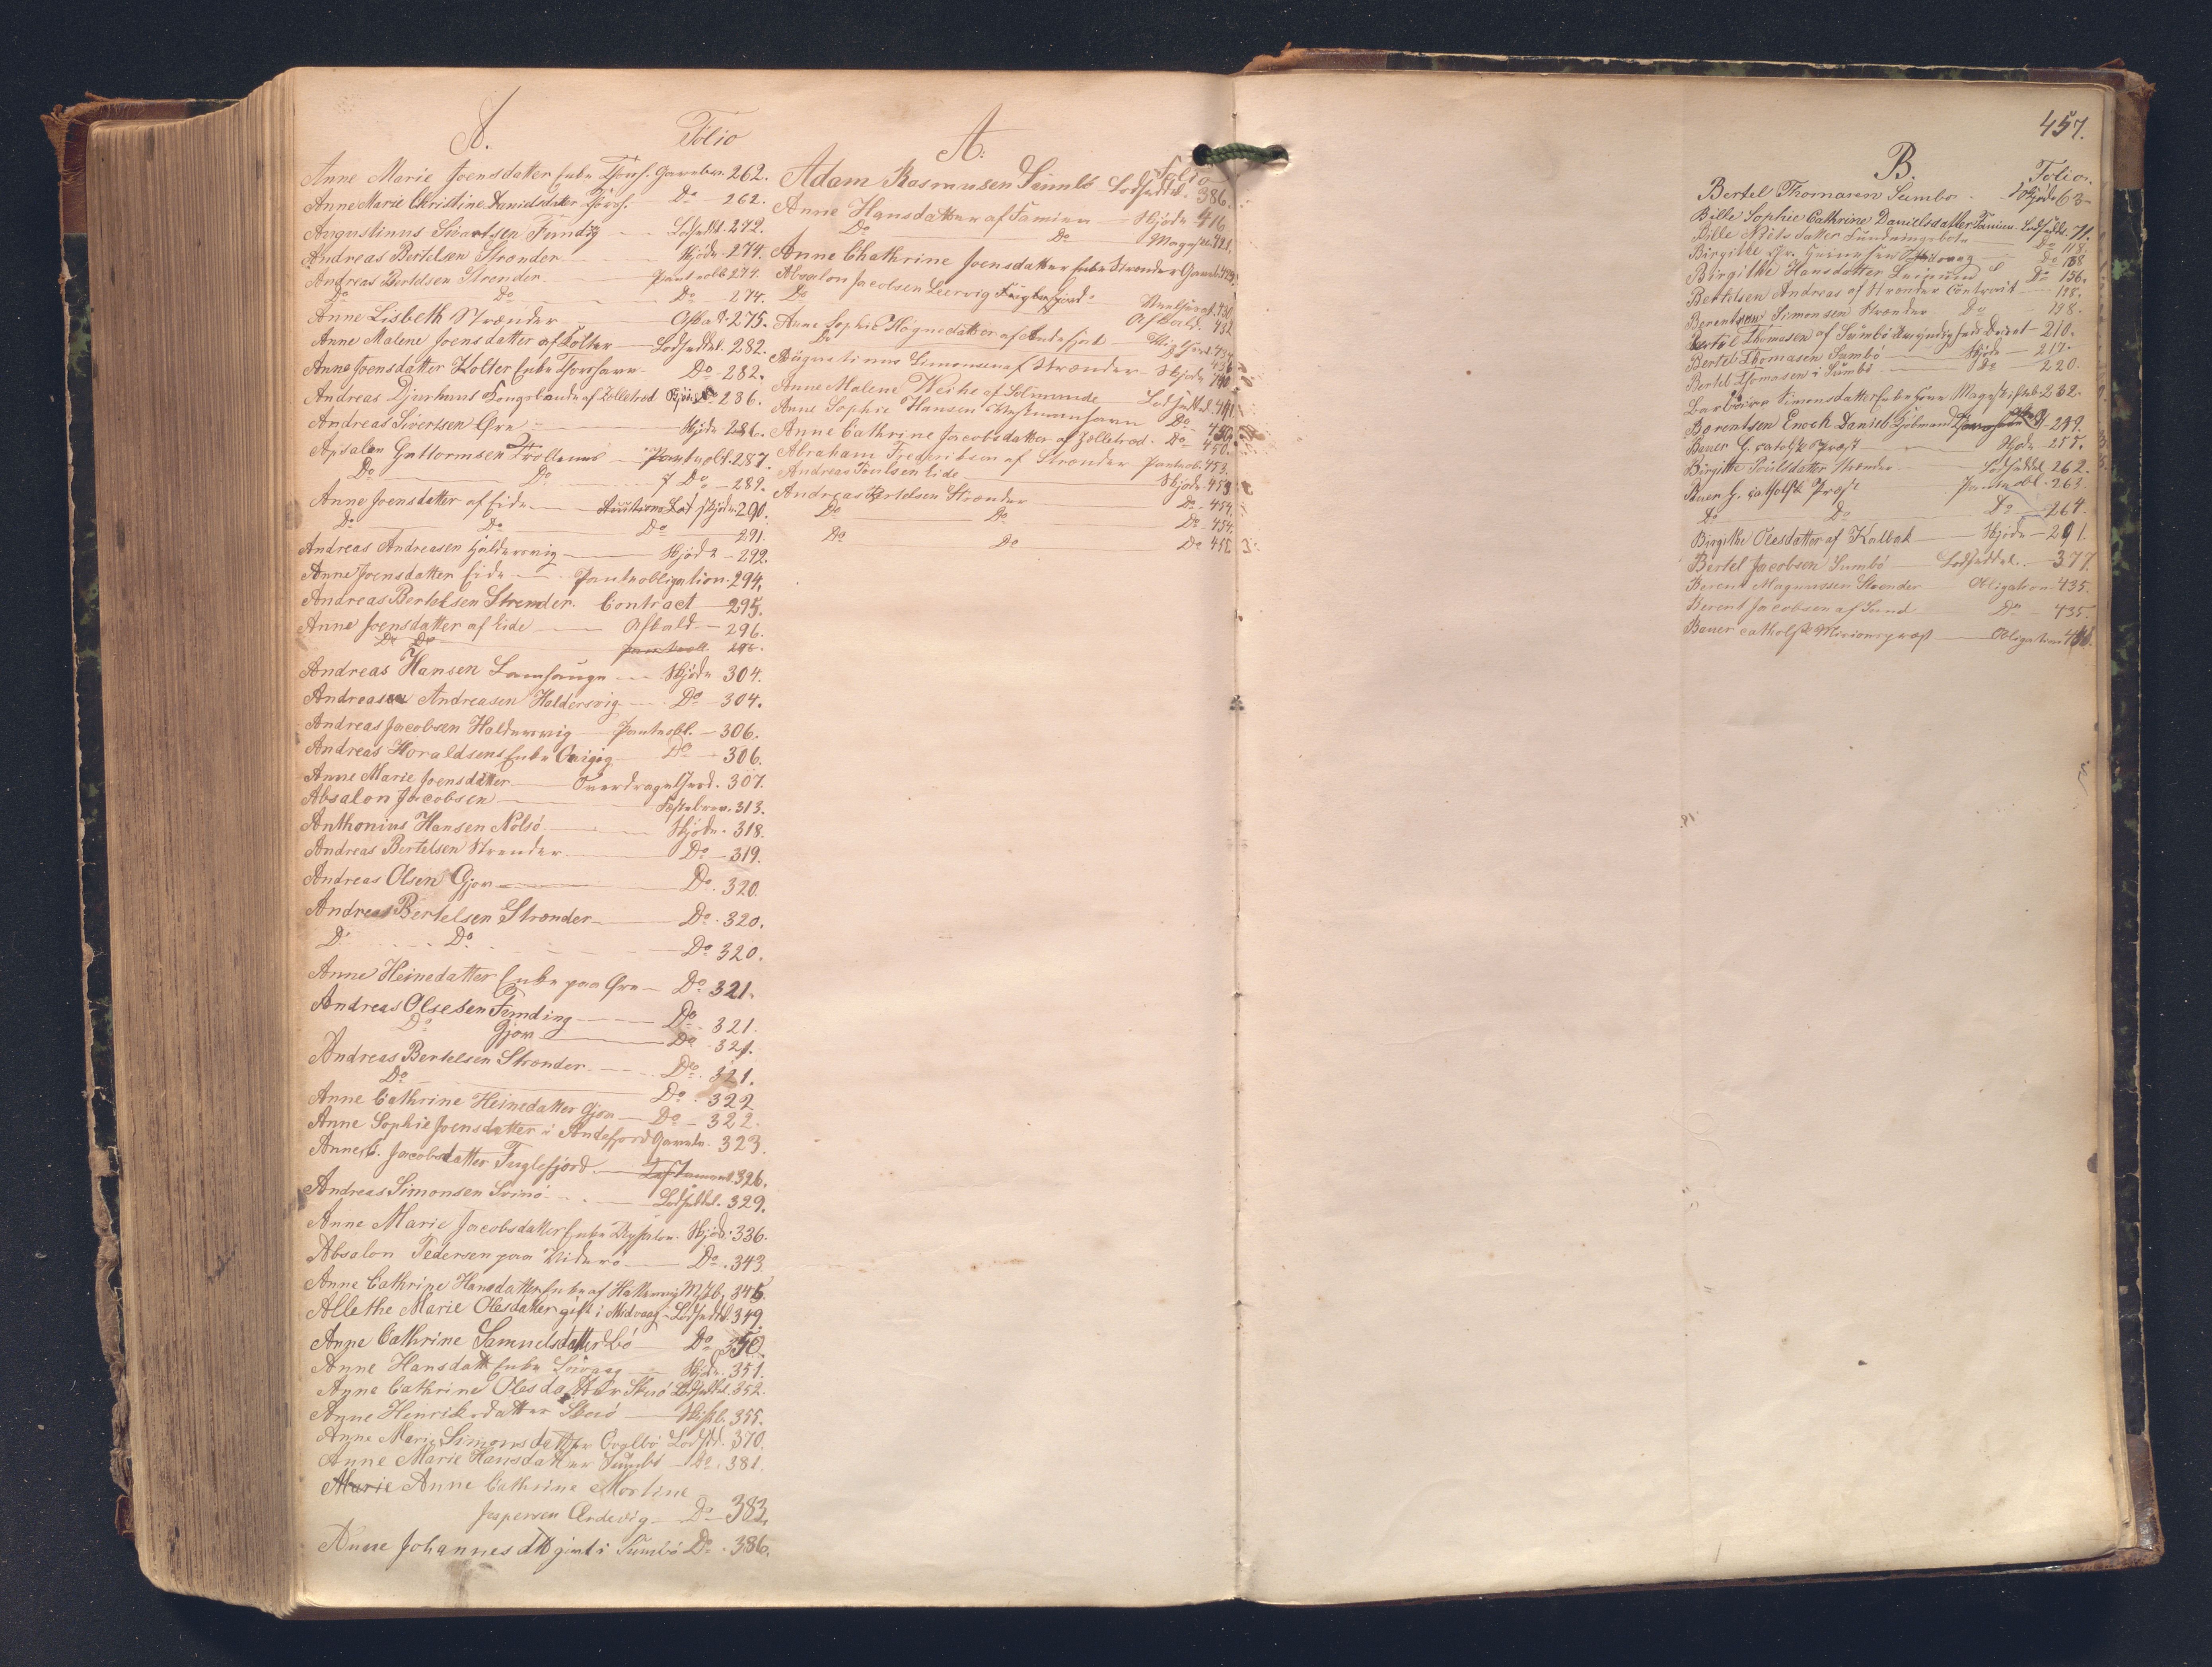 A. Folio
Anne Marie Joensdatter Enke Thorsh. Gavebr. 262.
Anne Marie Christine Danielsdatter Thorsh. Do 262.
Augustinus Sivertsen Funding Lodseddel 272.
Andreas Bertelsen Strænder Skjøde 274.
Andreas Bertelsen Strænder Panteobl 274.
Do Do Do 274.
Anne Lisbeth Strænder Afkald. 275.
Anne Malene Joensdatter af Kolter Lodseddel. 282.
Anne Joensdatter Kolter Enke Thorshavn Do 282.
Andreas Djurhuus Kongsbonde af Zelletræd 286.
Andreas Sivertsen Øre Skjøde 286.
Absalon Guttormsen Trøllenæs Panteobl. 287.
Do Do Do 289.
Anne Joensdatter af Eide Auctions Skjøde 290.
Do Do Do 291.
Andreas Andreasen Haldersvig Skjøde 292.
Anne Joensdatter Eide Panteobligation 294.
Andreas Bertelsen Strender. Contract 295.
Anne Joensdatter af Eide Afkald 296.
Do Do Panteobl. 296.
Andreas Hansen Lamhauge Skjøde 304.
Andreas Andreasen Haldersvig Do 304.
Andreas Jacobsen Haldersvig Panteobl. 306.
Andreas Haraldsens Enke Qvigvig Do 306.
Anne Marie Joensdatter Overdragelsesd. 307.
Absalon Jacobsen Festebrev. 313.
Anthonius Hansen Nolsø Skjøde 318.
Andreas Bertelsen Strænder Do 319.
Andreas Olsen Gjov Do. 320.
Andreas Bertelsen Strænder Do. 320.
Do Do Do 320.
Anne Heinedatter Enke paa Øre Do 321.
Andreas Olsesen Funding Do 321.
Do Gjov Do 321.
Andreas Bertelsen Strænder Do. 321.
Do Do. 322
Anne Cathrine Heinedatter Gjov Do 322.
Anne Sophie Joensdatter i Andefjord Gaveb. 323.
Anne C. Jacobsdatter Fuglefjord. Testament 326.
Andreas Simonsen Svinø Lodseddel. 329.
Anne Marie Jacobsdatter Enke Skjøde 336.
Absalon Pedersen paa Viderø Do. 343.
Anne Cathrine Hansdatter Enke af Hattervig 346.
Allethe Marie Olesdatter gift i Midvaag Lodseddel 349.
Anne Cathrine Samuelsdatter Bø Do 350.
Anne Hansdatt Enke Sørvaag Skjøde. 351.
Anne Cathrine Olesdatter Skuø Lodseddel. 352.
Anne Henriksdatter Skuø 355.
Anne Marie Simonsdatter Qvalbø Lodsed. 370.
Anne Marie Hansdatter Sumbø Do. 381.
Marie Anne Cathrine Mortine
Jespersen Ordevig Do 383.
Anne Johannesdtt gift i Sumbø Do. 386.
A. Folio
Adam Rasmusen Sumbø Lodseddel. 386.
Anne Hansdatter af Famien Skjøde 416
Do Do Mageskb. 421.
Anne Chathrine Joensdatter Enke Strænder Gaveb. 429.
Absalon Jacobsen Leervig Fuglefjord 430
Do Afkald. 432.
Anne Sophie Høgnedatter af Andefjord 434
Do Do 436
Augustinus Simonsen af Strænder Skjøde 440
Anne Malene Weihe af Solmunde Lodseddel. 441.
Anne Sophie Hansen Vestmanhavn Do 450.
Anne Cathrine Jacobsdatter af Zelletræd. Do 450.
Abraham Frederiksen af Strænder Panteob. 453.
Andreas Poulsen Eide Skjøde. 453
Andreas Bertelsen Strænder Do 454.
Do Do Do 454.
Do Do Do 455.
457.
B. Folio.
Bertel Thomasen Sumbø Skjøde 63
Bille Sophie Cathrine Danielsdatter Famien. Lodseddel. 71.
Bille Nilsdatter Funningsbotn Do 118.
Birgithe Do 138
Birgithe Hansdatter Do 156.
Berthelsen Andreas af Strænder Contract 198.
Berent Simonsen Strænder Do 198.
Bertel Thomasen af Sumbø Myndigheds 210.
Bertel Thomasen Sumbø Skjøde 217.
Bertel Thomasen i Sumbø Do 220.
Barbara Simonsdatter Enke Mageskifteb. 232.
Berentsen Enoch Daniel Kjøbmand 249.
Bauer G. catolsk Præst Skjøde 255.
Birgithe Poulsdatter Strænder Lodseddel 262.
Bauer G. catholsk Præst Panteobl. 263.
Do Do Do 264.
Birgithe Olesdatter af Kalbak Skjøde 291.
Bertel Jacobsen Sumbø Lodseddel. 377.
Berent Magnussen Strænder Obligation. 435.
Berent Jacobsen af Sund Do 435.
Bauer catholsk Missionspræst Obligation